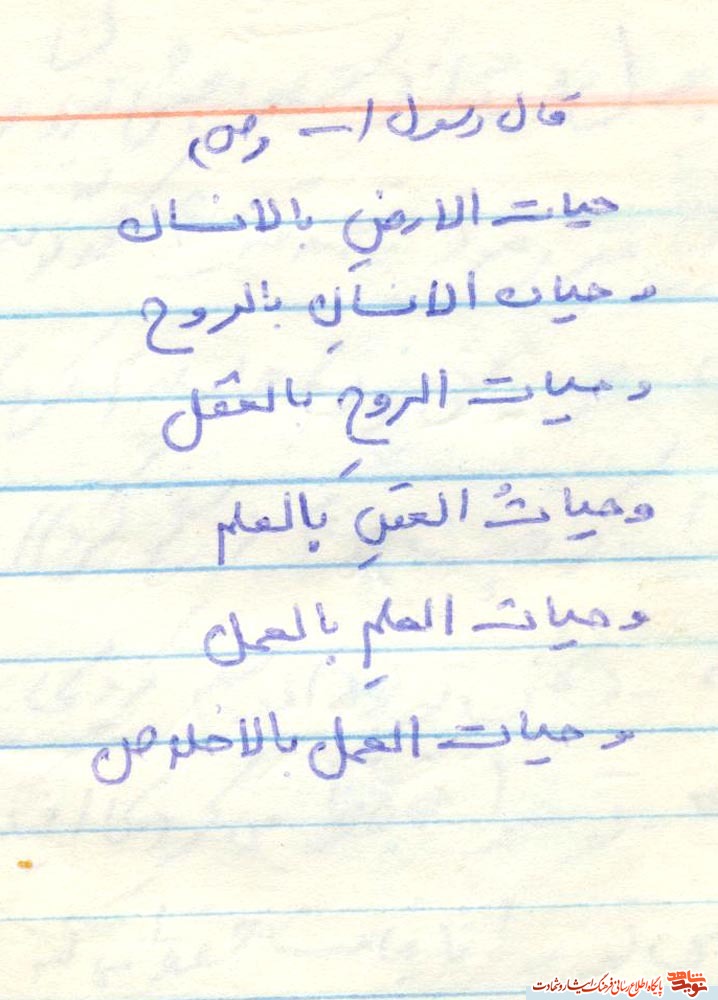 قال رسول ا... (ص)
حیات الارضِ بالانسان
و حیات الانسانِ بالروح
و حیات الروحِ بالعقل
و حیاتُ العقلِ بالعلم
و حیات العلمِ بالعمل
و حیات العمل بالاخلاص
نوید شاهد پایگاه اطلاع رسانی فرهنگ ایثار و شهادت